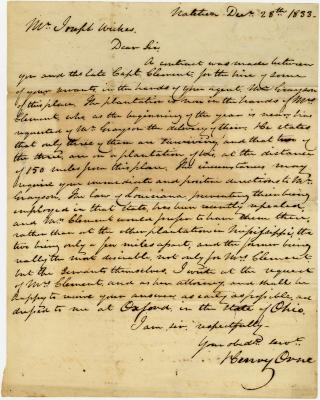 Natchez Decr. 28th 1833.
Mr. Joseph Wickes.
Dear Sir,
A contract was made between
you and the late Capt. Clement, for the hire of some
of your servants, in the hands of your agent, Mr. Grayson
of this place. The plantation is now in the hands of Mrs.
Clement, who as the beginning of the year is near, has
requested of Mr. Grayson the delivery of them. He states
that only three of them are remaining, and that two of
the three are on a plantation of his, at the distance
of 150 miles from this place. The circumstances may
require your immediate and positive directions to Mr.
Grayson. The law of Louisiana preventing their being
employed in that State has been recently repealed,
and Mrs. Clement would prefer to have them there,
rather than at the other plantation in Mississippi, the
two being only a few miles apart, and the former being
really the most desirable, not only for Mrs. Clement
but the servants themselves. I write at the request
of Mrs. Clement, and as her attorney, and shall be
happy to receive your answer as early as possible, ad-
dressed to me at Oxford, in the State of Ohio.
I am, sir, respectfully
Your obedt. servt.
Henry Orne